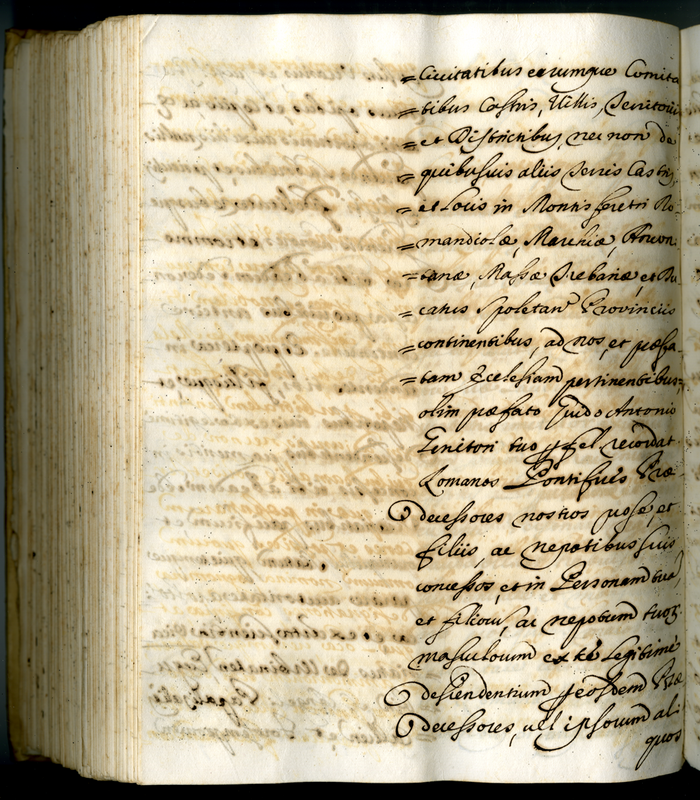 = Civitatibus earumque Comita
= tibus Castris, Villis, Territorijs
= et Districtibus, nec non de
= quibusuis aliis Terris Castris,
= et Locis in Montis feretri Ro-
= mandiolæ, Marchiæ, Ancon-
= tanæ, Massæ Trebariæ, et Du-
= catus Spoletan Provinciis
= continentibus, ad nos, et præfa-
= tam Ecclesiam pertinentibus,
olim præfato Guido Antonio
Genitori tuo per fel recordat
Romanos Pontifices Præ
decessores nostros pro se, et
filiis, ac nepotibus suis
concessos, et in Personam tua
et filiorū, ac nepotum tuorū
masculorum ex te Legitime
descendentium per eosdem Præ
decessores, vel ipsorum ali-
quos